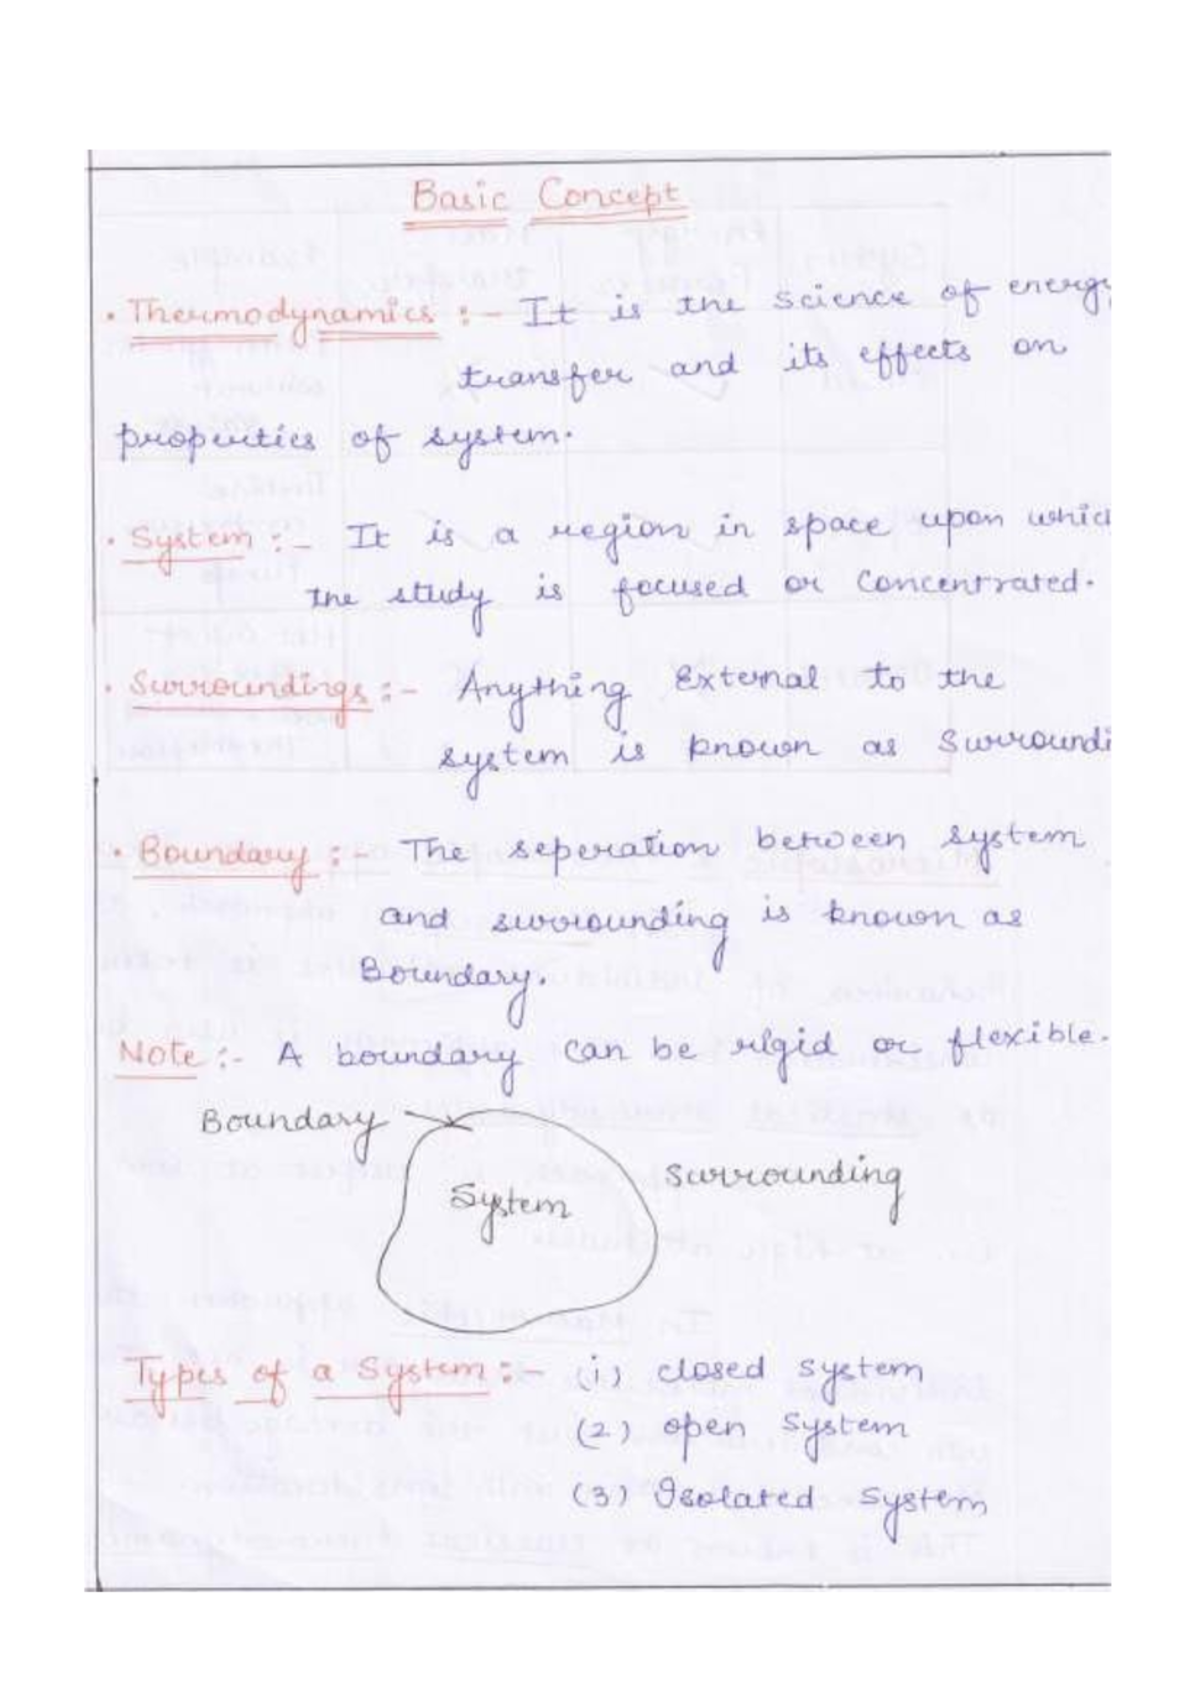 Basic Concept
• Thermodynamics :- It is the science of energy
transfer and its effects on
properties of system.
• System :- It is a region in space upon whic
the study is focused or concentrated.
• Surroundings :- Anything External to the
system is known as Surroundi
• Boundary :- The seperation between system
and surrounding is known as
Boundary.
Note :- A boundary can be rigid or flexible.
Boundary
System
Surrounding
Types of a System :- (i) closed system
(2) open system
(3) Isolated system